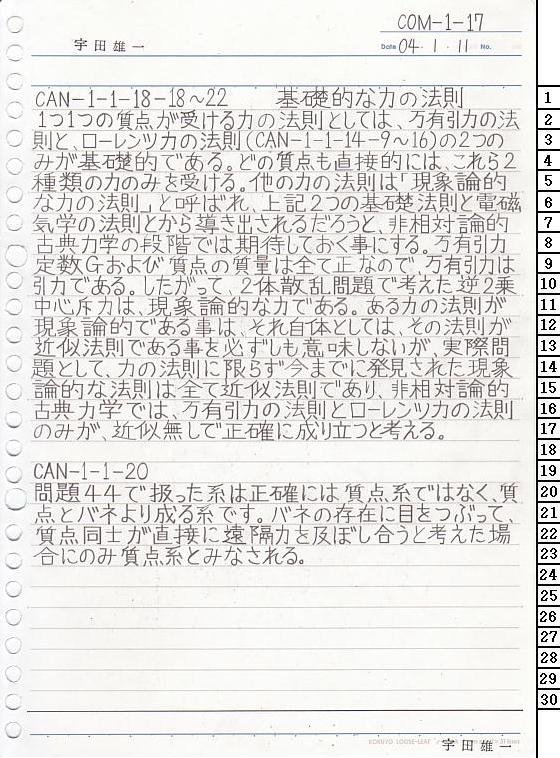 COM-1-17
宇田雄一
Date 04・1・11 No.
CAN-1-1-18-18〜22 基礎的な力の法則
1つ1つの質点が受ける力の法則としては、万有引力の法
則と、ローレンツ力の法則(CAN-1-1-14-9〜16)の2つの
みが基礎的である。どの質点も直接的には、これら2
種類の力のみを受ける。他の力の法則は「現象論的
な力の法則」と呼ばれ、上記2つの基礎法則と電磁
気学の法則とから導き出されるだろうと、非相対論的
古典力学の段階では期待しておく事にする。万有引力
定数Gおよび質点の質量は全て正なので、万有引力は
引力である。したがって、2体散乱問題で考えた逆2乗
中心斥力は、現象論的な力である。ある力の法則が
現象論的である事は、それ自体としては、その法則が
近似法則である事を必ずしも意味しないが、実際問
題として、力の法則に限らず今までに発見された現象
論的な法則は全て近似法則であり、非相対論的
古典力学では、万有引力の法則とローレンツ力の法則
のみが、近似無しで正確に成り立つと考える。
CAN-1-1-20
問題44で扱った系は正確には質点系ではなく、質
点とバネより成る系です。バネの存在に目をつぶって、
質点同士が直接に遠隔力を及ぼし合うと考えた場
合にのみ質点系とみなされる。
KOKUYO LOOSE-LEAF
宇田雄一
1
2
3
4
5
6
7
8
9
10
11
12
13
14
15
16
17
18
19
20
21
22
23
24
25
26
27
28
29
30